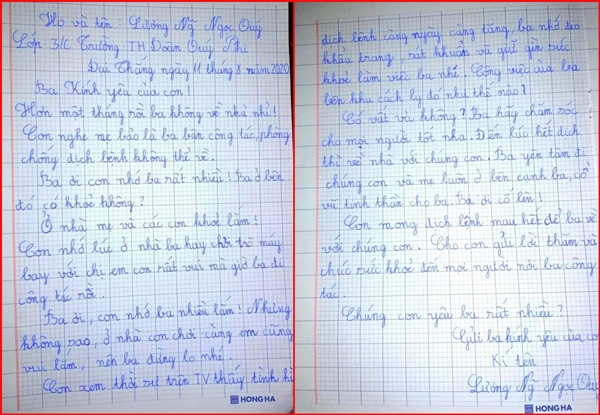 Họ và tên: Lương Mỹ Ngọc Quý
Lớp: 3/C Trường TH Đoàn Quý Phi
Đại Thắng ngày 11 tháng 8 năm 2020
Ba Kính yêu của con!
Hơn một tháng rồi ba không về nhà nhỉ!
Con nghe mẹ bảo là ba bận công tác, phòng
chống dịch bệnh không thể về.
Ba ơi con nhớ ba rất nhiều! Ba ở bên
đó có khoẻ không?
Ở nhà mẹ và các con khoẻ lắm!
Con nhớ lúc ở nhà ba hay chơi trò máy
bay với chị em con rất vui mà giờ ba đi
công tác rồi.
Ba ơi, con nhớ ba nhiều lắm! Nhưng
không sao, ở nhà con chơi cùng em cũng
vui lắm, nên ba đừng lo nhé.
Con xem thời sự trên TV thấy, tình hì
HONG HA
dịch bệnh càng ngày càng tăng, ba nhớ đeo
khẩu trang, sát khuẩn và giữ gìn sức
khoẻ làm việc ba nhé. Công việc của ba
bên khu cách ly đó như thế nào?
Có vất vả không? Ba hãy chăm sóc
cho mọi người tốt nha. Đến lúc hết dịch
thì về nhà với chúng con. Ba yên tâm đi
chúng con và mẹ luôn ở bên cạnh ba, cổ
vũ tinh thần cho ba. Ba ơi cố lên!
Con mong dịch bệnh mau hết để ba về
với chúng con. Cho con gửi lời thăm và
chúc sức khoẻ đến mọi người nơi ba công
tác.
Chúng con yêu ba rất nhiều?
Gửi ba kính yêu của co
Kí tên
Lương Mỹ Ngọc Quý
HONG HA